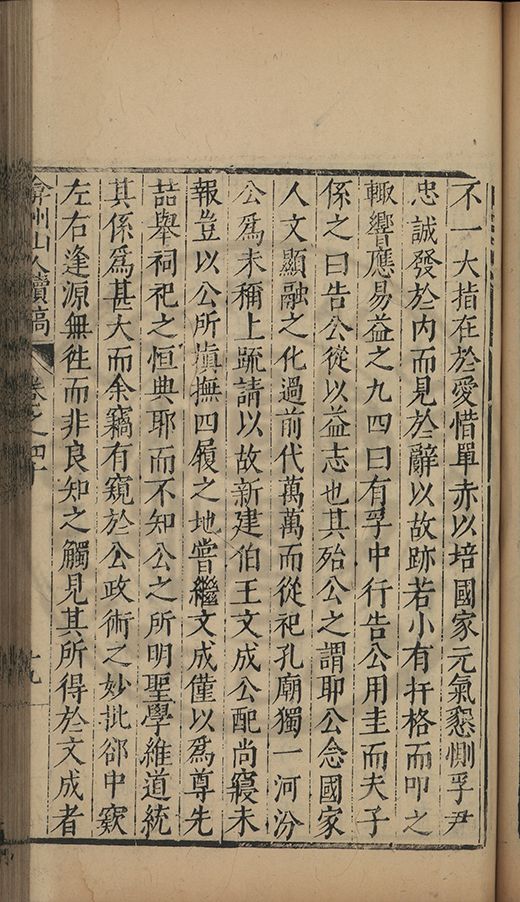 不一大指在於愛惜單赤以培國家元氣懇惻孚尹
忠誠發於內而見於辭以故跡若小有扞格而叩之
輙響應易益之九四曰有孚中行告公用圭而夫子
係之曰告公從以益志也其殆公之謂耶公念國家
人文顯融之化過前代萬萬而從祀孔廟獨一河汾
公爲未稱上䟽請以故新建伯王文成公配尚寢未
報豈以公所塡撫四履之地嘗繼文成僅以爲尊先
喆舉祠祀之恒典耶而不知公之所明聖學維道統
其係爲甚大而余竊有窺於公政術之妙批郤中窾
左右逢源無徃而非良知之觸見其所得於文成者
弇州山人續稿 卷之四十 十九